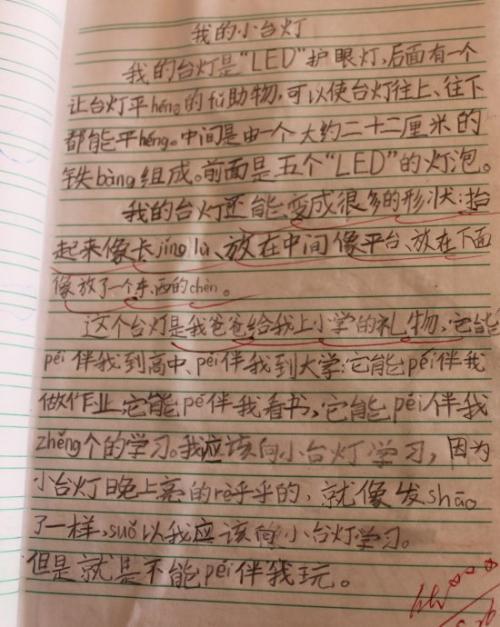 我的小台灯
我的台灯是“LED”护眼灯,后面有一个
让台灯平héng的辅助物,可以使台灯往上、往下
都能平héng。中间是由一个大约二十二厘米的
铁bàng组成。前面是五个“LED”的灯泡。
我的台灯还能变成很多的形状:抬
起来像卡jīng là、放在中间像平台、放在下面
像放了一个东西的chèn。
这个台灯是我爸爸给我上小学的礼物,它能
péi伴我到高中、péi伴我到大学:它能péi伴我
做作业它能pé伴我看书,它能péi伴我
zhěng个的学习。我应该向小台灯学习,因为
小台灯晚上亮的rè乎乎的、就像发shāo
了一样,suǒ以我应该向小台灯学习。
但是就是不能péi伴我玩。